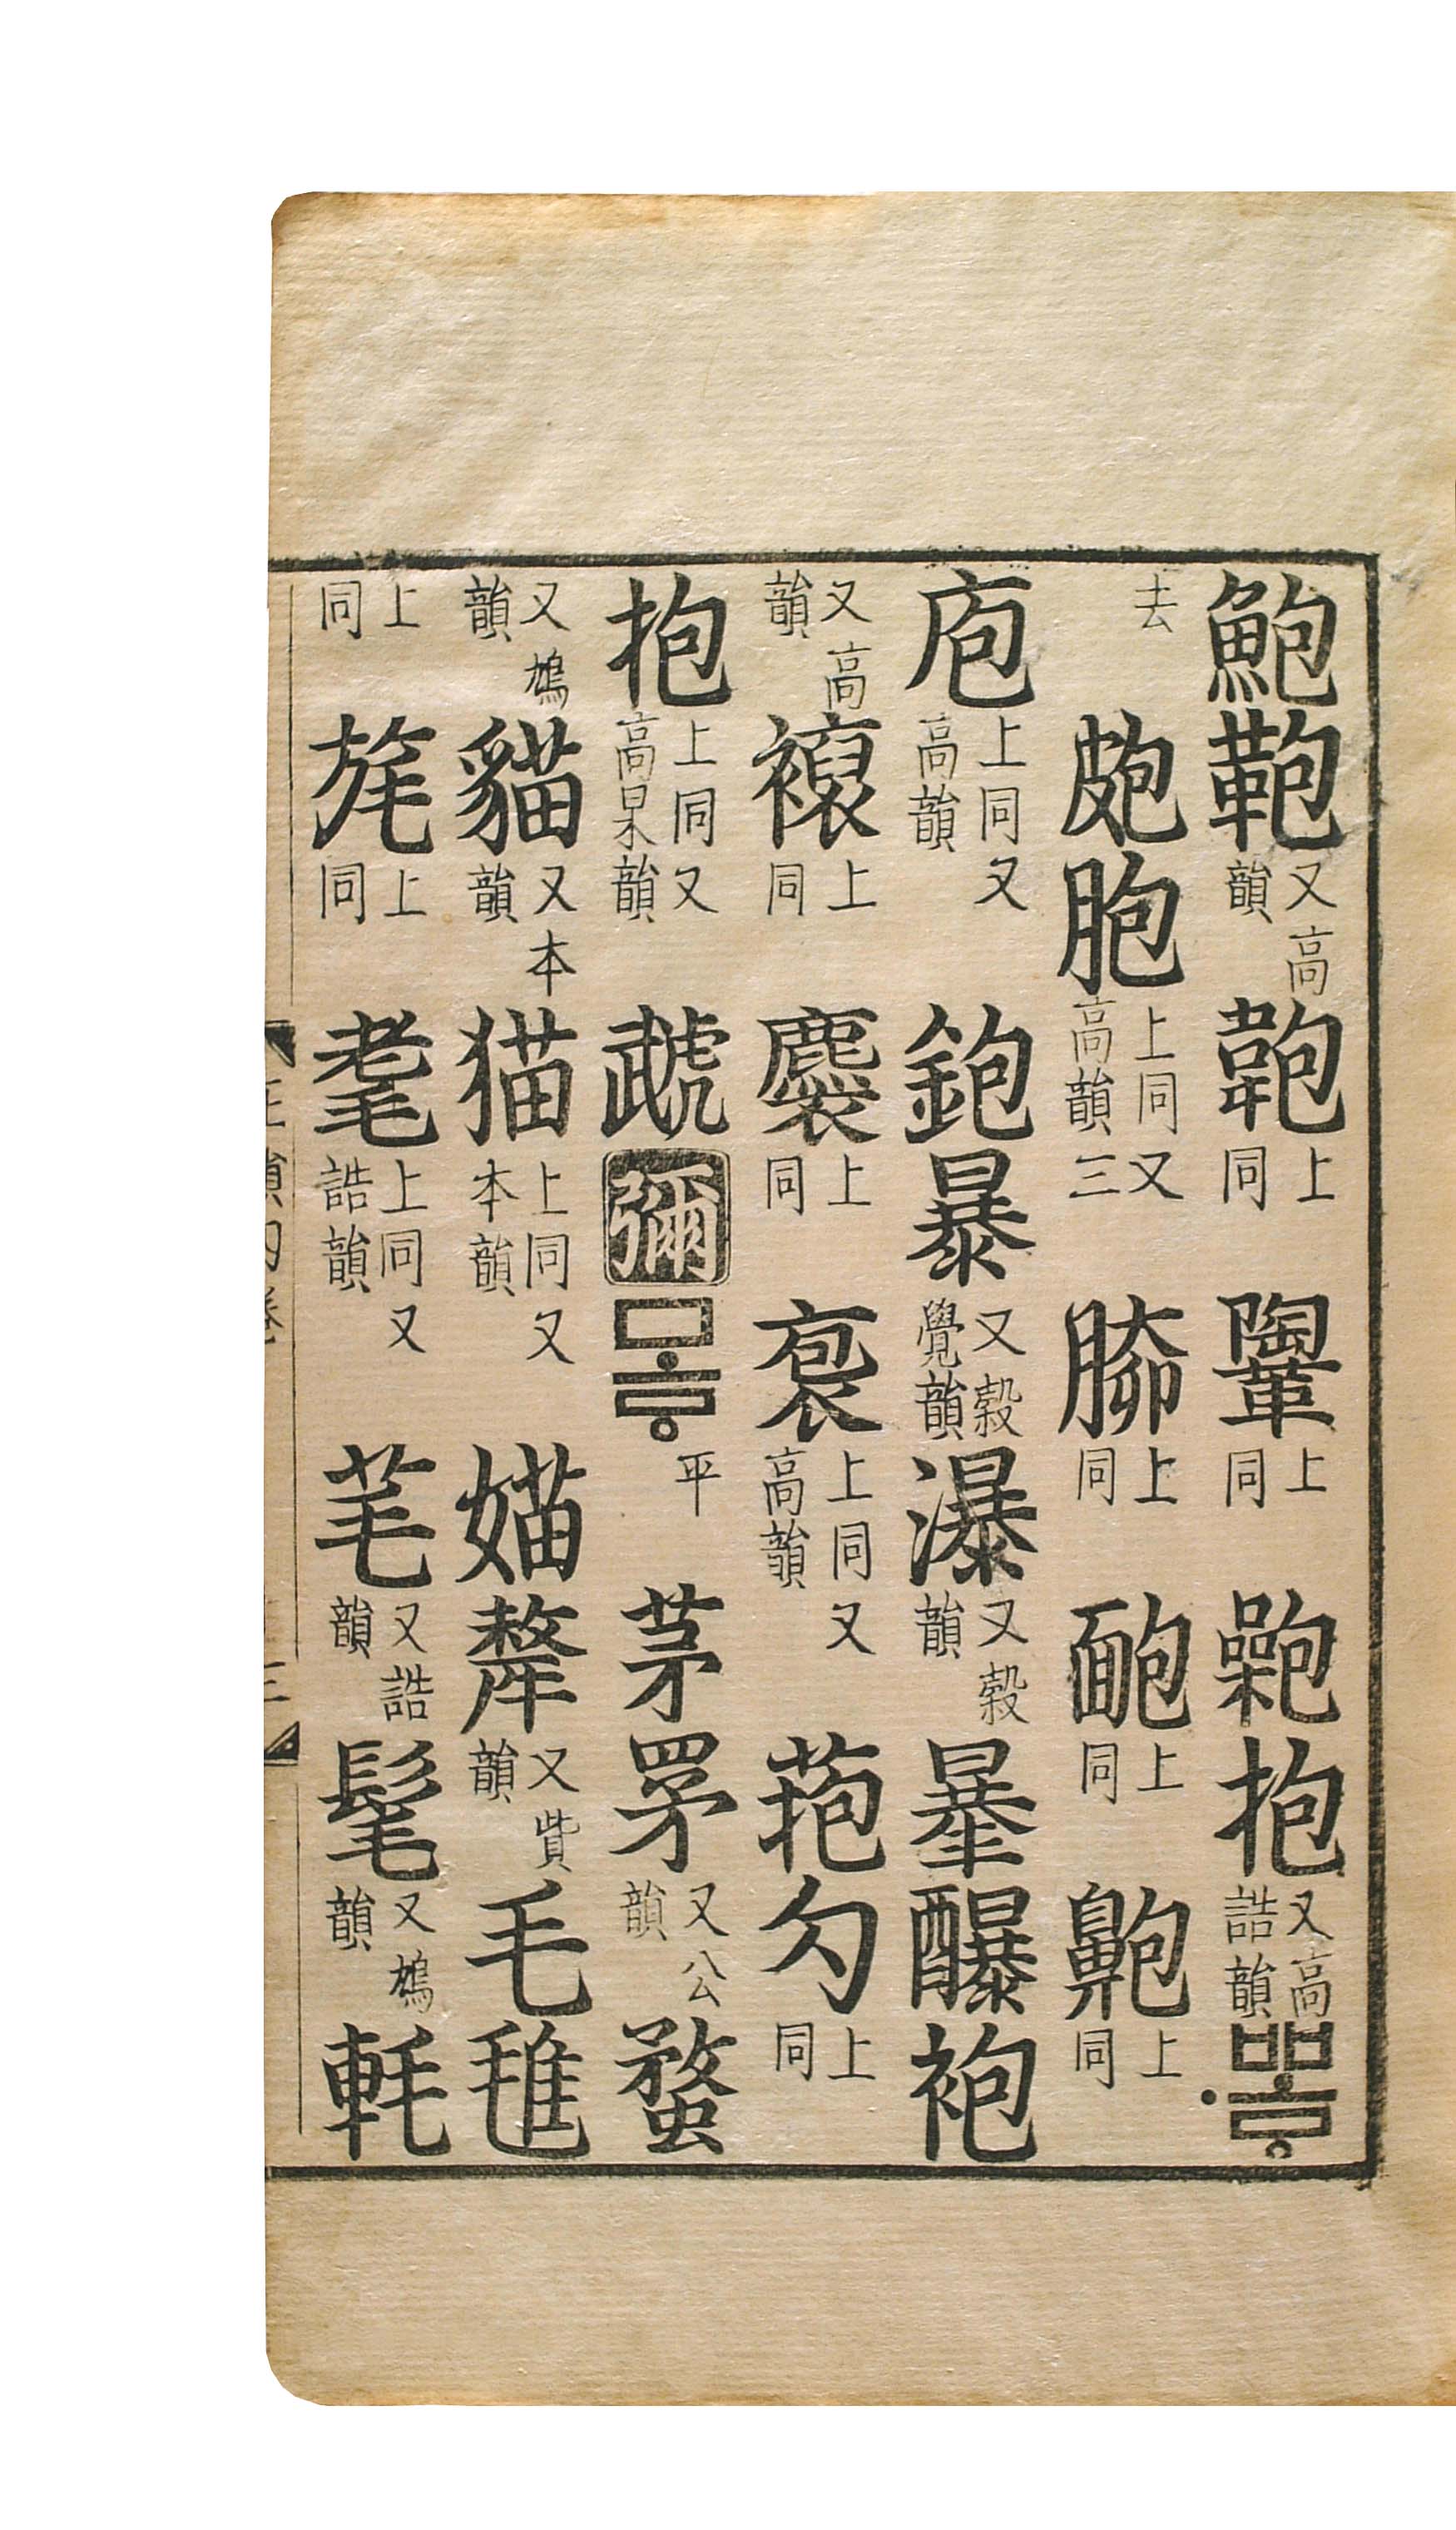 鮑鞄又高韻 上同 上同 抱又高誥韻뽀ᇢ
去 皰胞上同又高三韻 上同靤上同 上同
庖上同又高韻鉋暴又穀覺韻瀑又穀韻曓 袍
又高韻 上同 上同袌上同又高韻菢勽上同
抱上同又高杲韻虣彌모ᇢ平茅罞又公韻蝥
又鳩韻貓又本韻猫上同又本韻媌犛又貲韻毛
上同旄上同耄上同又誥韻芼又誥韻髦又鳩韻軞